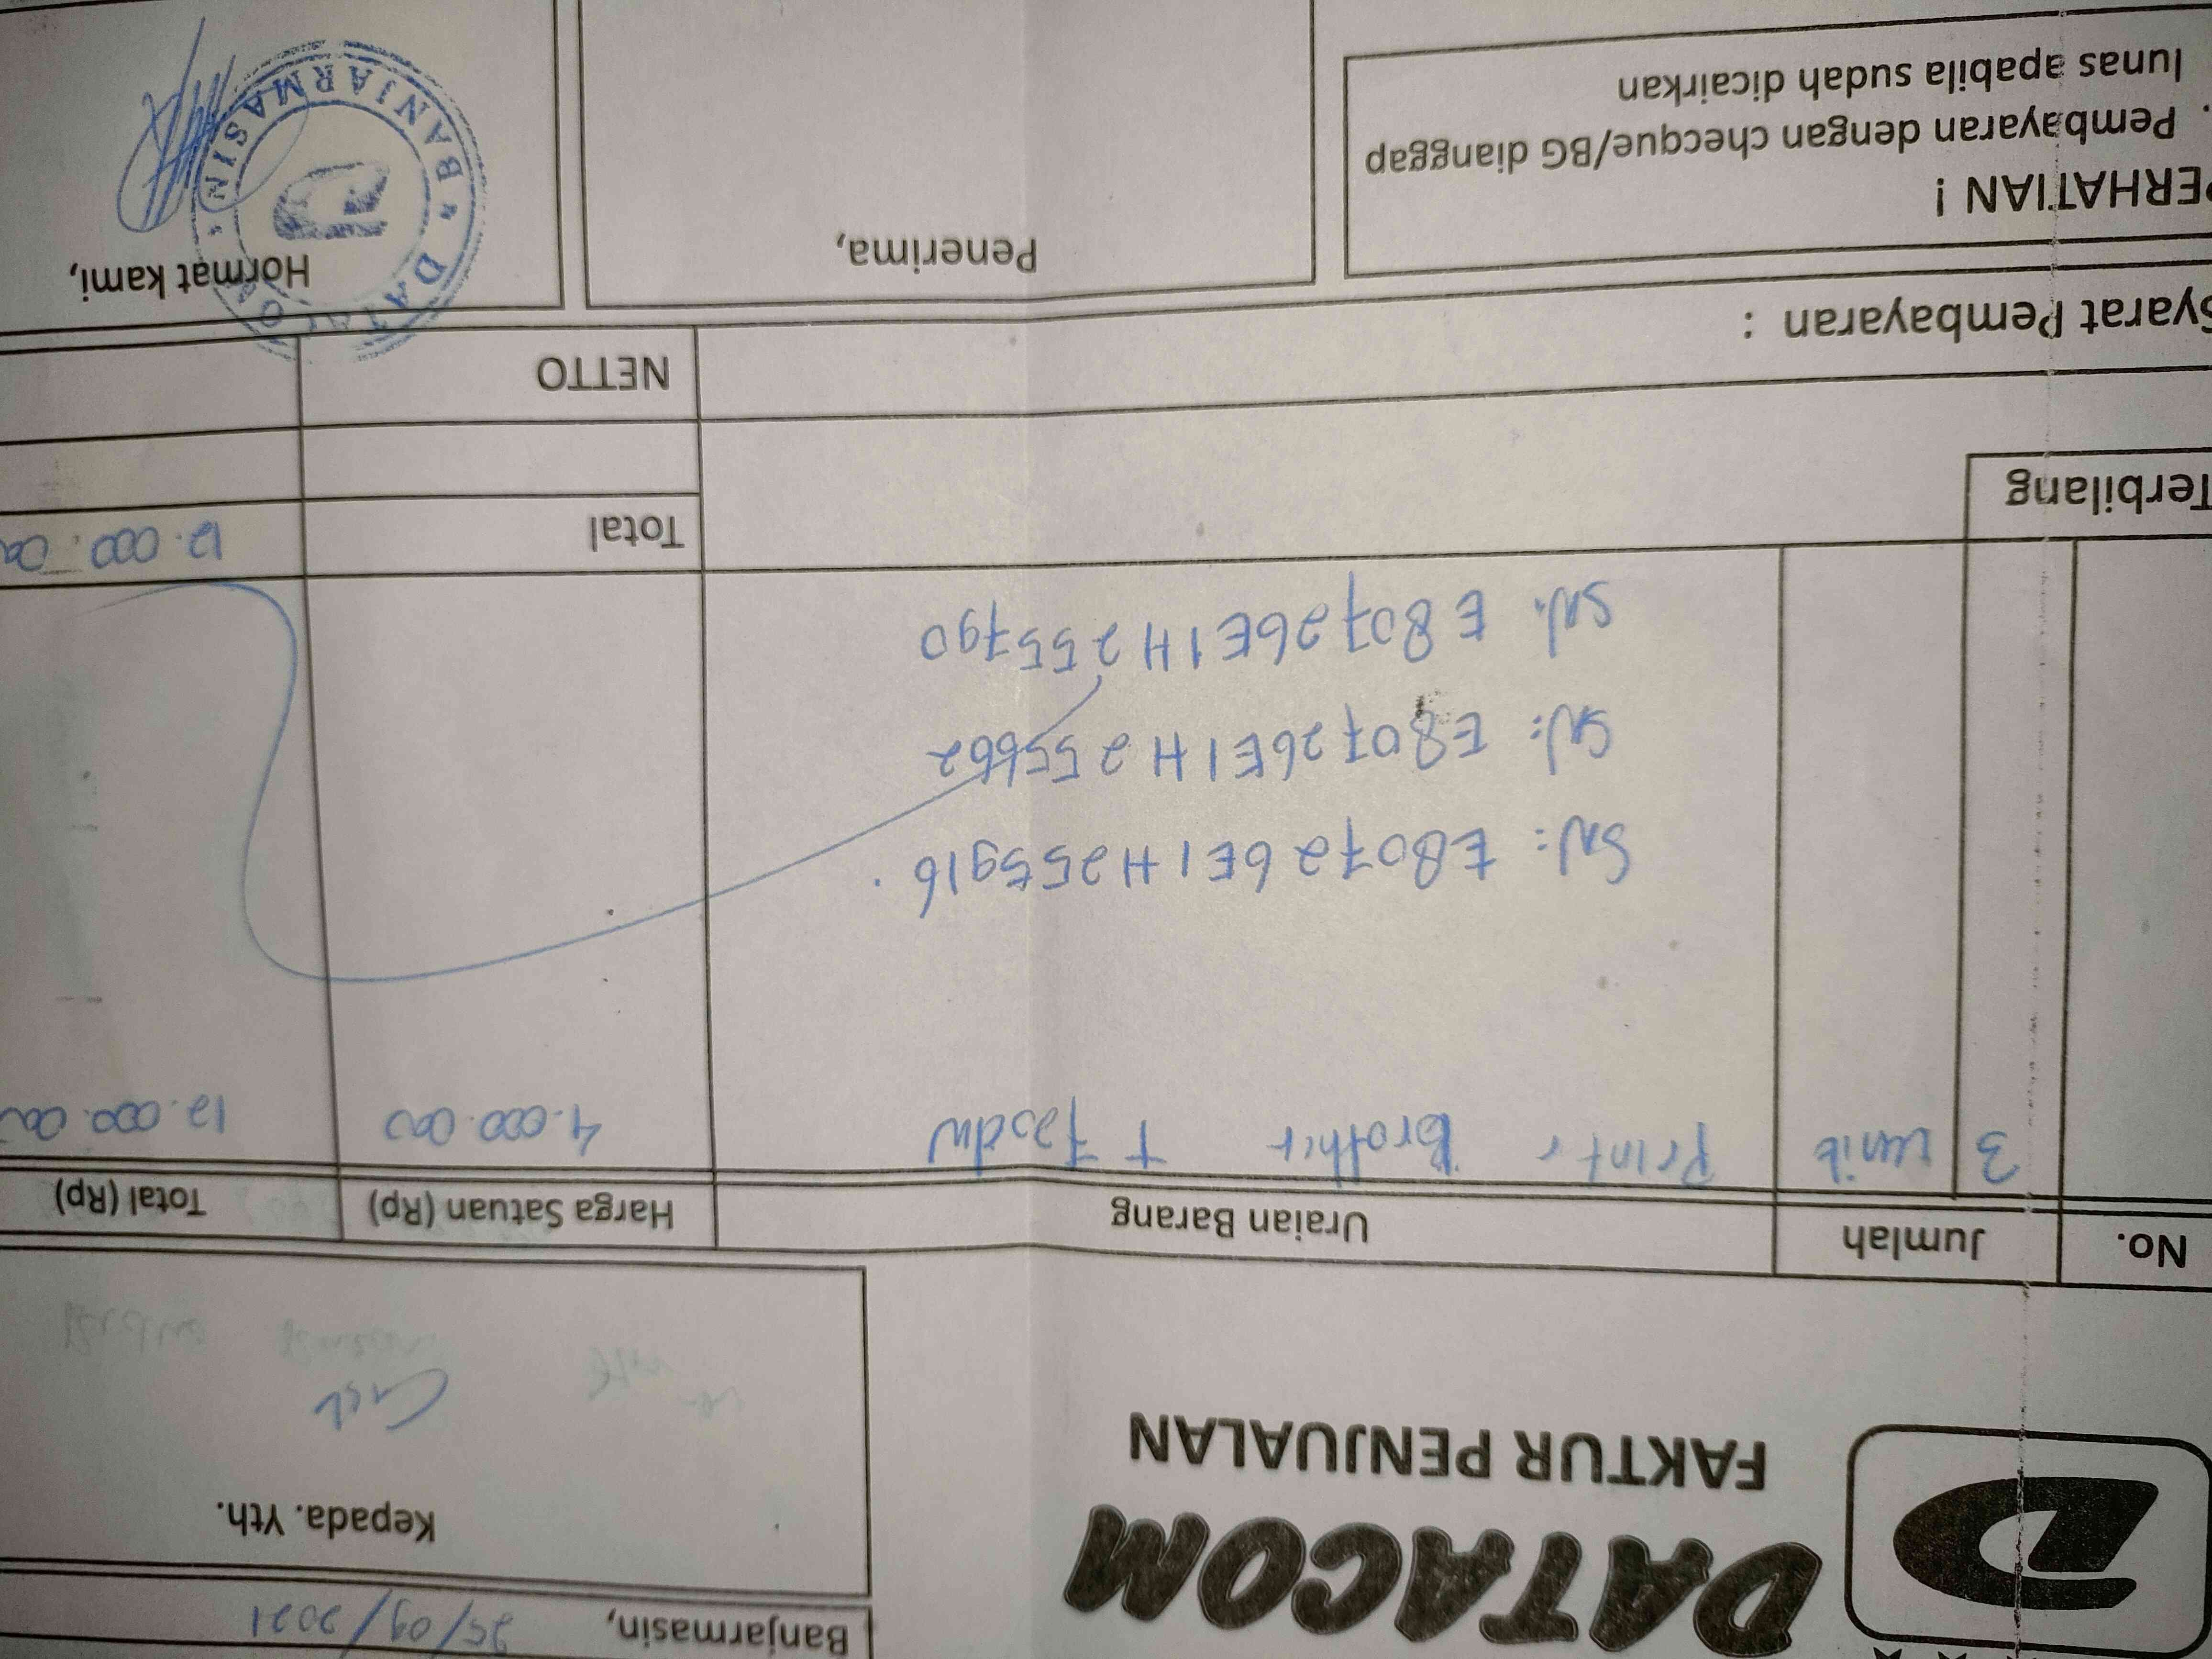 DATACOM
FAKTUR PENJUALAN
Banjarmasin, 25/09/2021
Kepada. Yth.
Cash
No. Jumlah Uraian Barang Harga Satuan (Rp) Total (Rp)
3 unit Printr Brother T 720dw 4.000.000 12.000.000
SN: E80726E1H255916
SN: E80726E1H255662
SN: E80726E1H255790
Terbilang Total 12.000.000
NETTO
Syarat Pembayaran :
PERHATIAN !
Pembayaran dengan checque/BG dianggap
lunas apabila sudah dicairkan
Penerima,
Hormat kami,
DATACOM
BANJARMASIN